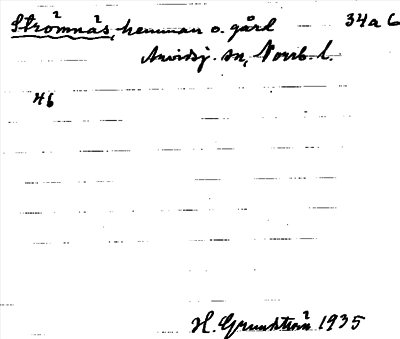 Strömnäs, hemman o. gård 34 a 6
Arvidsj. sn, Norrb. l.
46
H. Grundström 1935